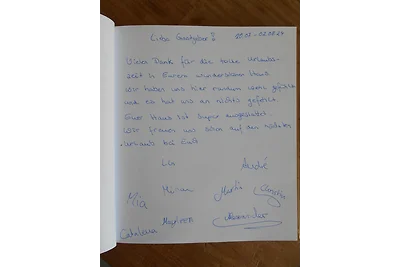 Liebe Gastgeber!
Vielen Dank für die tolle Urlaubs-
zeit in Eurem wunderschönen Haus
Wir haben uns hier rundum wohl gefühlt
und es hat uns an nichts gefehlt.
Euer Haus ist super ausgestattet.
Wir freuen uns schon auf den nächsten
Urlaub bei Euch
Lia André
Miriam Martin
Mia
Alexander